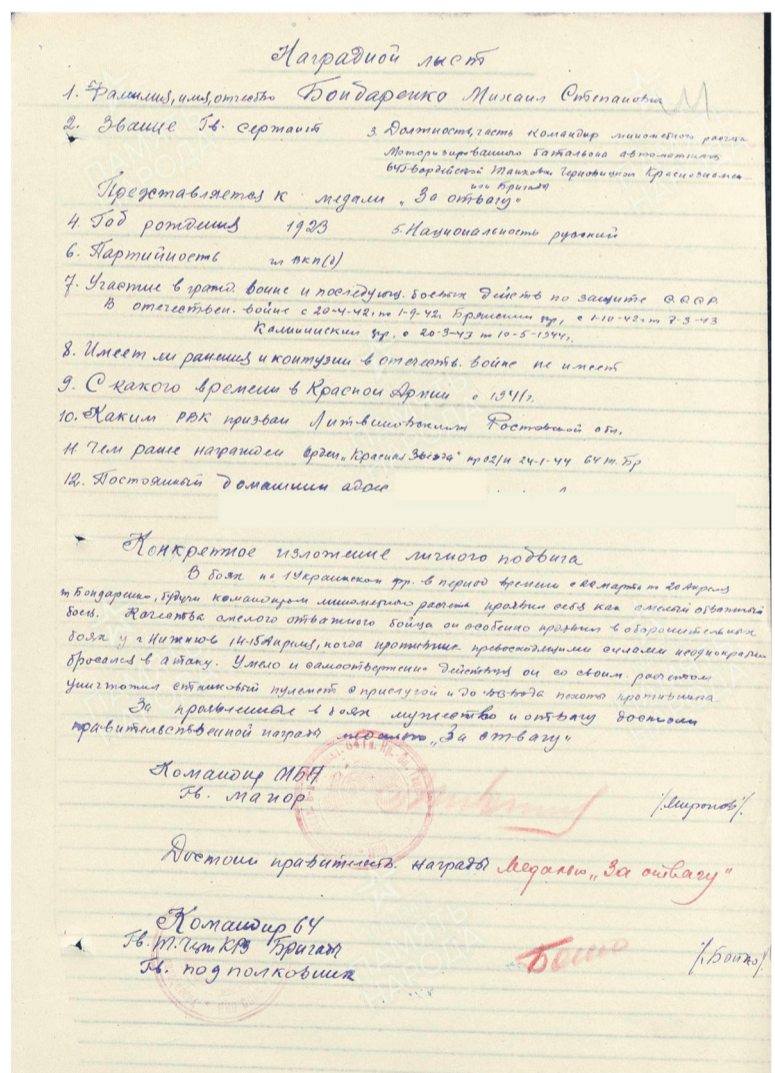 Наградной лист
1. Фамилия, имя, отчество Бондаренко Михаил Степанович
2. Звание Гв. сержант 3. Должность, часть командир минометного расчета
Моторизированного батальона автоматчиков
64 Гвардейской Танковой Черновицкой Краснознамен-
ной Бригады
Представляется к медали „За отвагу"
4. Год рождения 1923 5. Национальность русский
6. Партийность чл ВКП(б)
7. Участие в гражд. войне и последующ. боевых действ по защите СССР
В отечествен. войне с 20-4-42г. по 1-9-42г. Брянский фр, с 1-10-42г. по 7-3-43
Калининский фр, с 20-3-43 по 10-5-1944г.
8. Имеет ли ранения и контузии в отечеств. войне не имеет
9. С какого времени в Красной Армии с 1941г.
10. Каким РВК призван Ростовской обл.
11. Чем ранее награжден Орден „Красная Звезда" пр 02/н 24-1-44 64 т. Бр
12. Постоянный домашний адрес
Конкретное изложение личного подвига
В боях на 1 Украинском фр. в период времени с 22 марта по 20 Апреля
т Бондаренко, будучи командиром минометного расчета проявил себя как смелый отважный
боец. Качества смелого отважного бойца он особенно проявил в оборонительных
боях у г Нижнюв 14-15 Апреля, когда противник превосходящими силами неоднократно
бросался в атаку. Умело и самоотверженно действуя он со своим расчетом
уничтожил станковый пулемет с прислугой и до взвода пехоты противника.
За проявленные в боях мужество и отвагу достоин
правительственной награды медалью „За отвагу"
Командир МБА
Гв. майор /Миронов/.
Достоин правительств. награды Медалью „За отвагу"
Командир 64
Гв. Т. Чут КРЗ Бригады
Гв. подполковник Бойко /Бойко/.
ПАМЯТЬ
НАРОДА